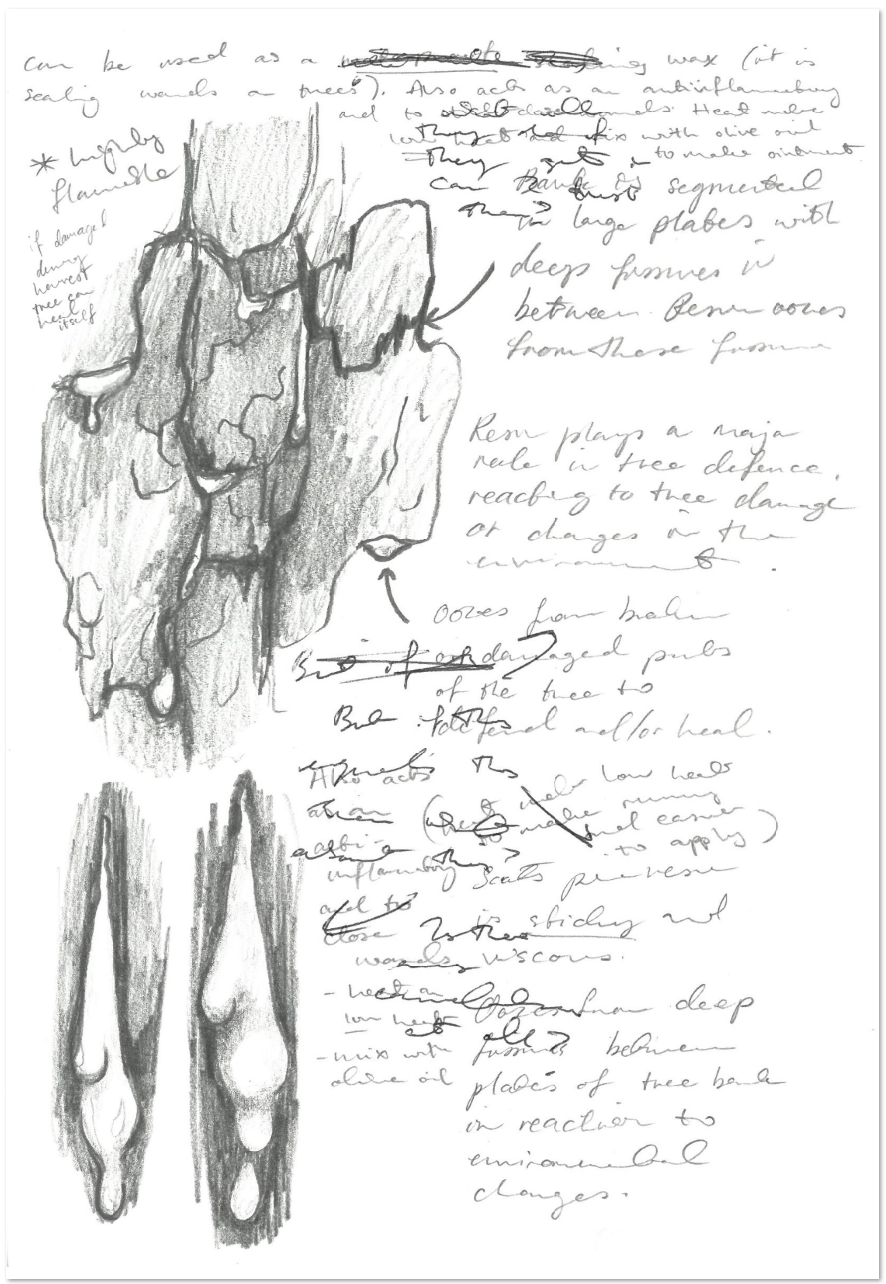 can be used as a wax (it is
sealing wands on trees). Also acts as an antiinflammatory
and to Heat
mix with olive oil
to make ointment
* highly
flamable
if damaged
during
harvest
tree can
heal
itself
They get
can trust
they?
Bark is segmented
in large plates with
deep fissures in
between. Resin oozes
from these fissures
Resin plays a major
role in tree defence,
reacting to tree damage
or changes in the
environment.
oozes from broken
damaged parts
of the tree to
defend and/or heal.
But if this
equals this
Also acts
as an
anti-
inflammatory
and to
close
wands
( melt low heat
to make runny
and easier
to apply)
Scots pine resin
is sticky and
viscous.
- heat on
low heat
- mix with
olive oil
at all?
Oozes from deep
fissures between
plates of tree bark
in reaction to
environmental
changes.